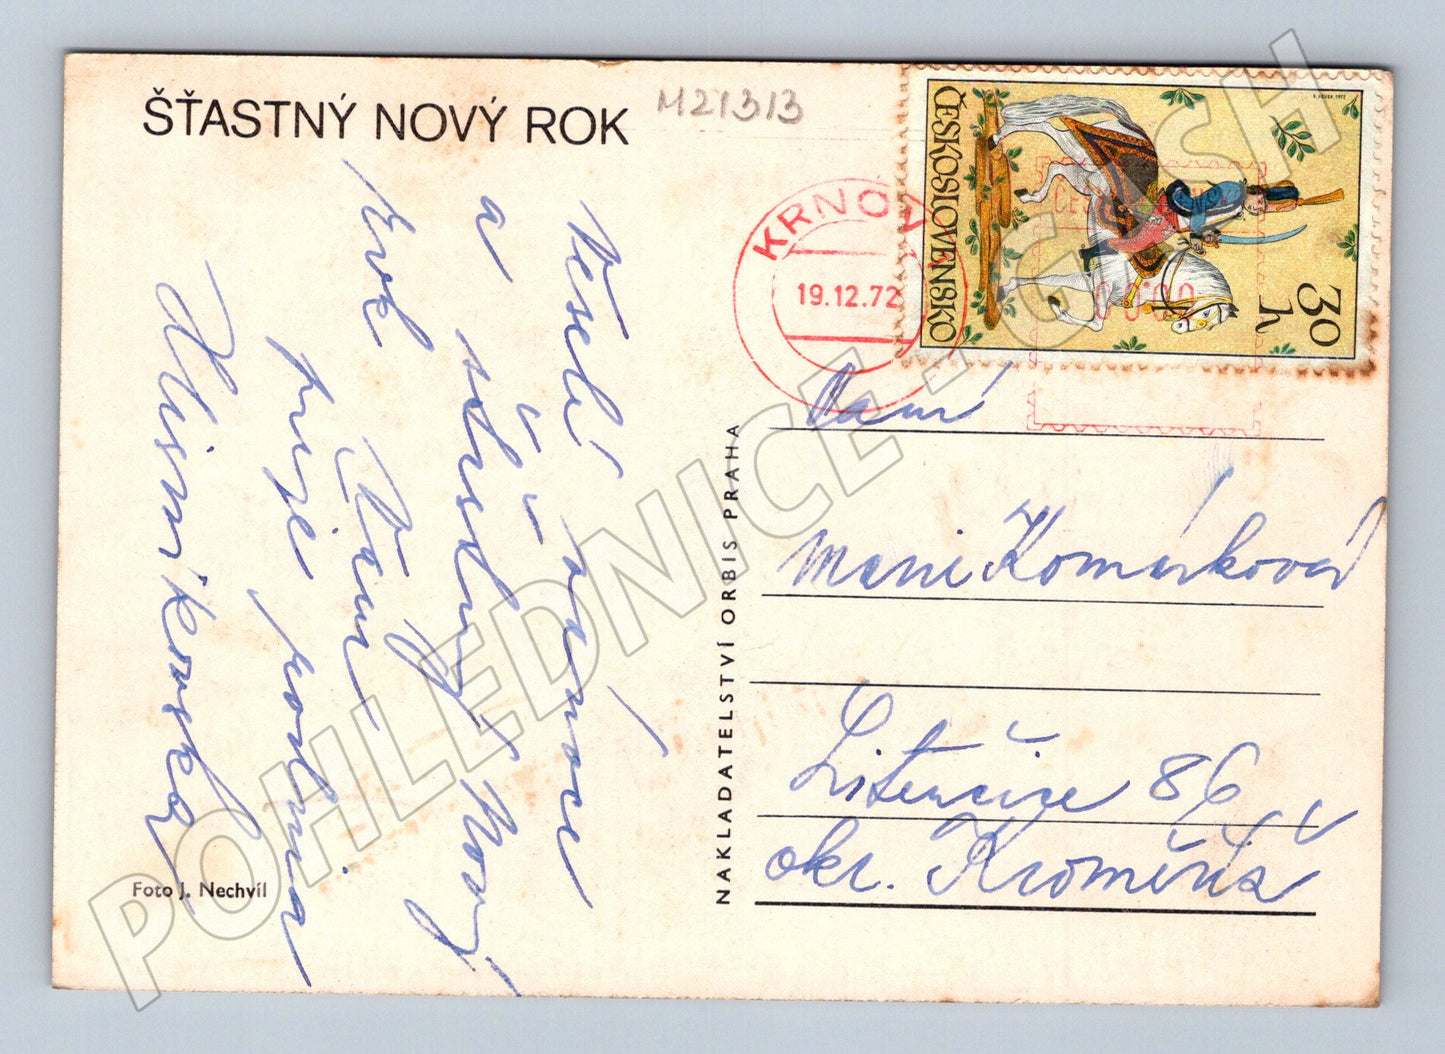 ŠŤASTNÝ NOVÝ ROK
M21313
Veselé vánoce
a šťastný Nový
Rok Vám
přeje rodina
Foto J. Nechvíl
NAKLADATELSTVÍ ORBIS PRAHA
KRNOV
19.12.72
ČESKOSLOVENSKO
30 h
00.00
Paní
Marie Komárková
Litenčice 86
okr. Kroměříž
POHLEDNICE.